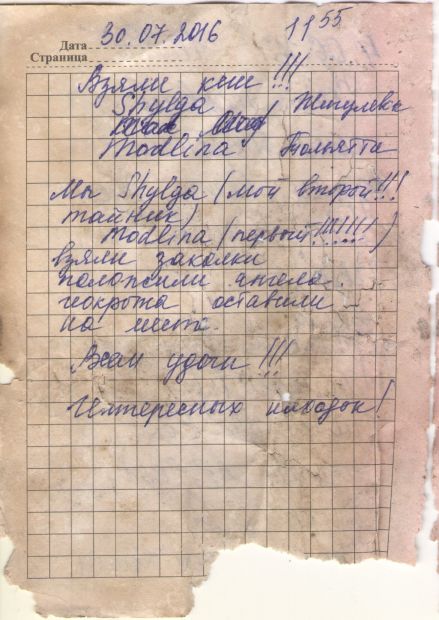 30.07.2016 11 55
Дата
Страница
Взяли кеш !!!
Shylga / Жигулевск
Modlina Тольятти
Мы Shylga (мой второй!!!
тайник)
Modlina (первый!!!!!!!!)
взяли заколки
положили ангела.
геокрота оставили
на месте.
Всем удачи !!!
Интересных находок!